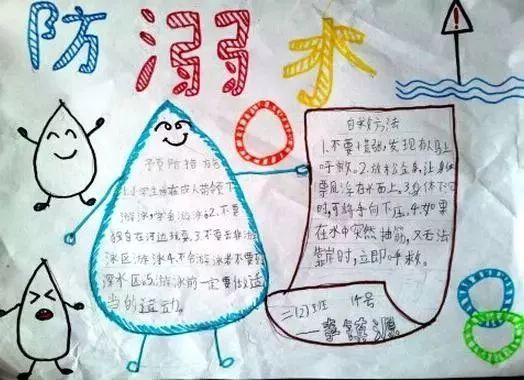 防溺水
预防措施
1.小学生应在成人带领下
游泳,学会游泳。2.不要
独自在河边玩耍。3.不去非游
泳区游泳。4.不会游泳者不要到
深水区。5.游泳前一定要做适
当的运动。
自救方法
1.不要慌张,发现有人马上
呼救。2.放松全身,让身体
飘浮在水面上。3.身体下沉
时,可将手向下压。4.如果
在水中突然抽筋,又无法
靠岸时,立即呼救。
二(2)班 14号
李镇源